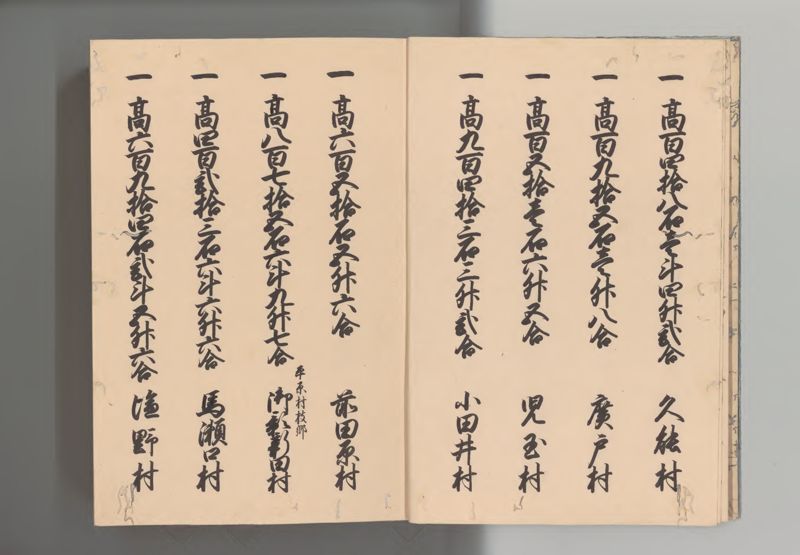 一 高百四拾八石壱斗四升弐合 久能村
一 高百九拾五石壱升八合 廣戸村
一 高百五拾壱石六升五合 児玉村
一 高九百四拾三石三升弐合 小田井村
一 高六百五拾石五升六合 前田原村
一 高八百七拾五石六斗九升七合 平原村枝郷 御影新田村
一 高四百弐拾三石六斗六升六合 馬瀬口村
一 高六百九拾四石弐斗五升六合 塩野村